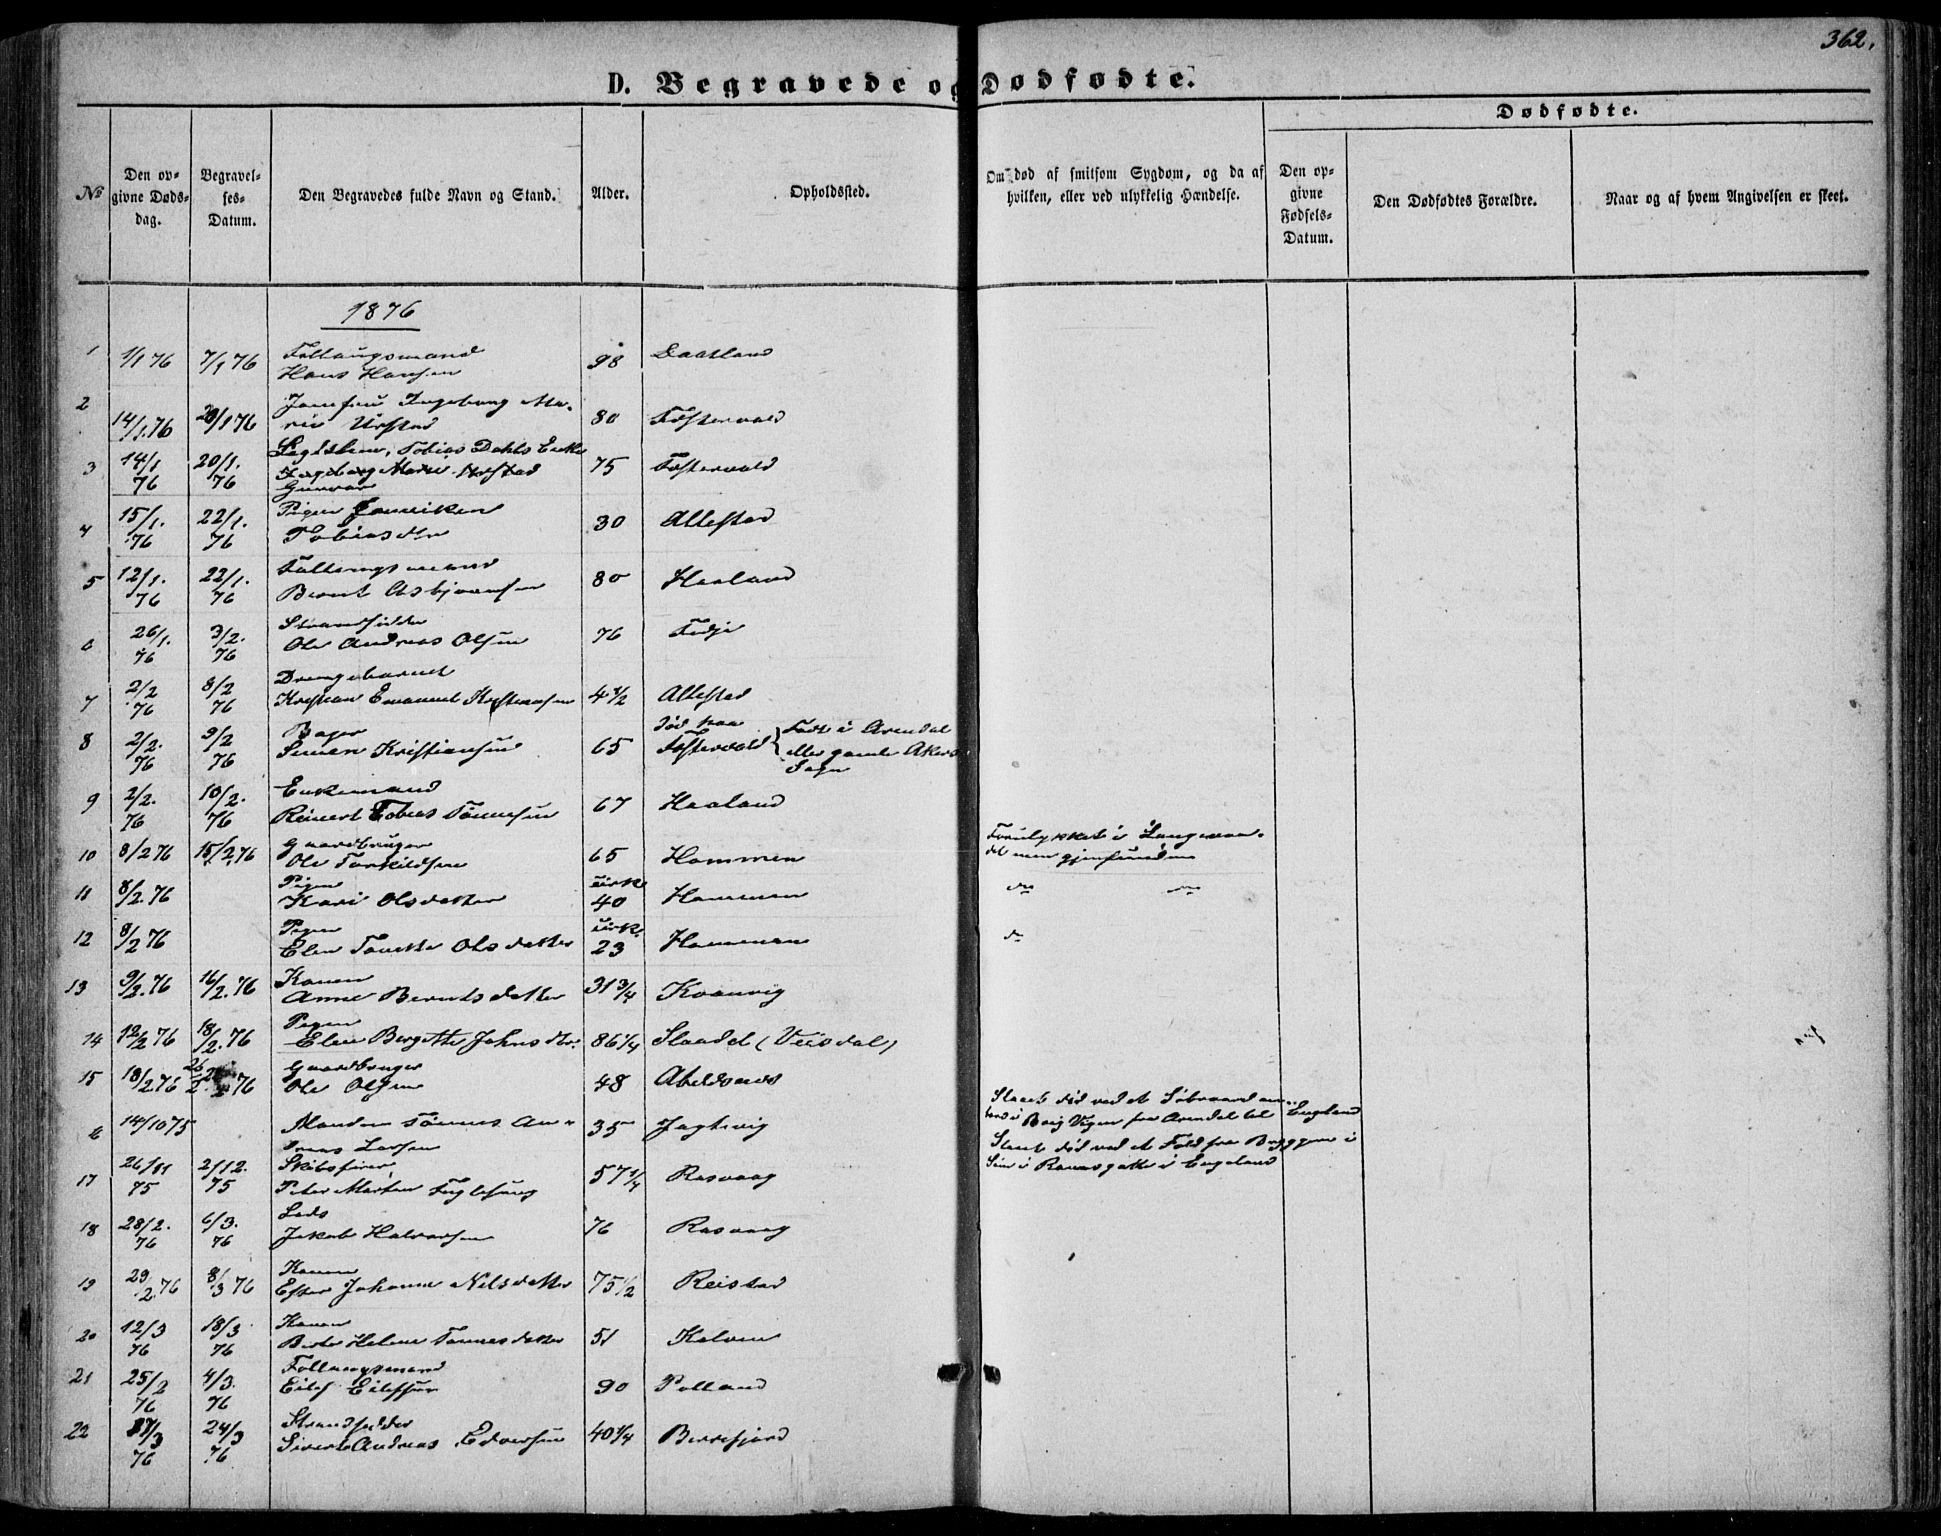 362.
D. Begravede og Dødfødte.
Dødfødte.
No
Den opgivne Døds-dag.
Begravel-ses-Datum.
Den Begravedes fulde Navn og Stand.
Alder.
Opholdssted.
Om død af smitsom Sygdom, og da af hvilken, eller ved ulykkelig Hændelse.
Den op-givne Fødsels-Datum.
Den Dødfødtes Forældre.
Naar og af hvem Angivelsen er skeet.
1876
1 1/1 76 7/1 76 Hans Hansen 98 Daatland
2 14/1 76 20/1 76 Ingeborg Ma-
rie Urstad 80
3 14/1 76 20/1. 76 Tobias Dahls Enke
Ingeborg Marie Urstad 75
4 15/1. 76 22/1. 76 Pigen
Tobiasdtr 30 Allestad
5 12/1. 76 22/1. 76
Bernt Asbjørnsen 80 Haaland
6 26/1. 76 3/2. 76 Strandsidder
Ole Andreas Olsen 76 Fedje
7 2/2 76 8/2 76 Drengebarnet
Kristian Emanuel Kristensen 4 1/2 Allestad
8 2/2. 76 9/2 76
Simen Kristiansen 65 død paa
Født i Arendal
eller gamle Akers
Sogn
9 2/2. 76 10/2. 76 Enkemand
Reinert Tobias Tønnesen 67 Haaland
10 8/2 76 15/2 76 Gaardbruger
Ole Torkildsen 65 Hommen Forulykket i
men gjenfunden
11 8/2. 76 Pigen
Kari Olsdatter cirka 40 Hommen do do
12 8/2 76 Pigen
Elen Tonette Olsdatter cirka 23 Hommen do
13 9/2. 76 16/2. 76 Konen
Anne Berntsdatter 31 3/4
14 12/2 76 18/2. 76 Pigen
Elen Bergitte Johnsdtr. 86 1/4 Slaadel (Veisdal)
15 18/2. 76 26/2 76 Gaardbruger
Ole Olsen 48 Abelsnes
14/10 75 Manden Tønnes An-
dreas Larsen 35 Jogtevig Slaaet død ved
Brig Vigen fra Arendal til England
17 26/11 75 2/12. 75 Skibsfører
Peter Martin Fuglesang 57 1/4 Rasvaag Slaaet død ved et Fald fra Bryggen i
Ramsgate i England
18 28/2. 76 6/3. 76 Lods
Jakob Halvorsen 76 Rasvaag
19 29/2 76 8/3 76 Konen
Ester Johanne Nilsdatter 75 1/2 Reistad
20 12/3 76 18/3 76 Konen
Berte Helene Tønnesdatter 51 Kalven
21 25/2 76 4/3. 76
Eilef Eilefsen 90 Polland
22 17/3 76 24/3 76 Strandsidder
Sivert Andreas Edvarsen 40 1/4 Berrefjord